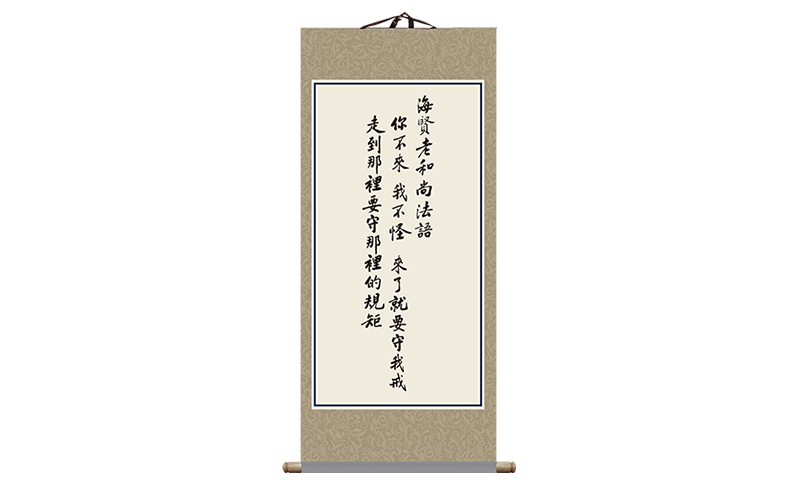 海賢老和尚法語
你不來 我不怪 來了就要守我戒
走到那裡要守那裡的規矩